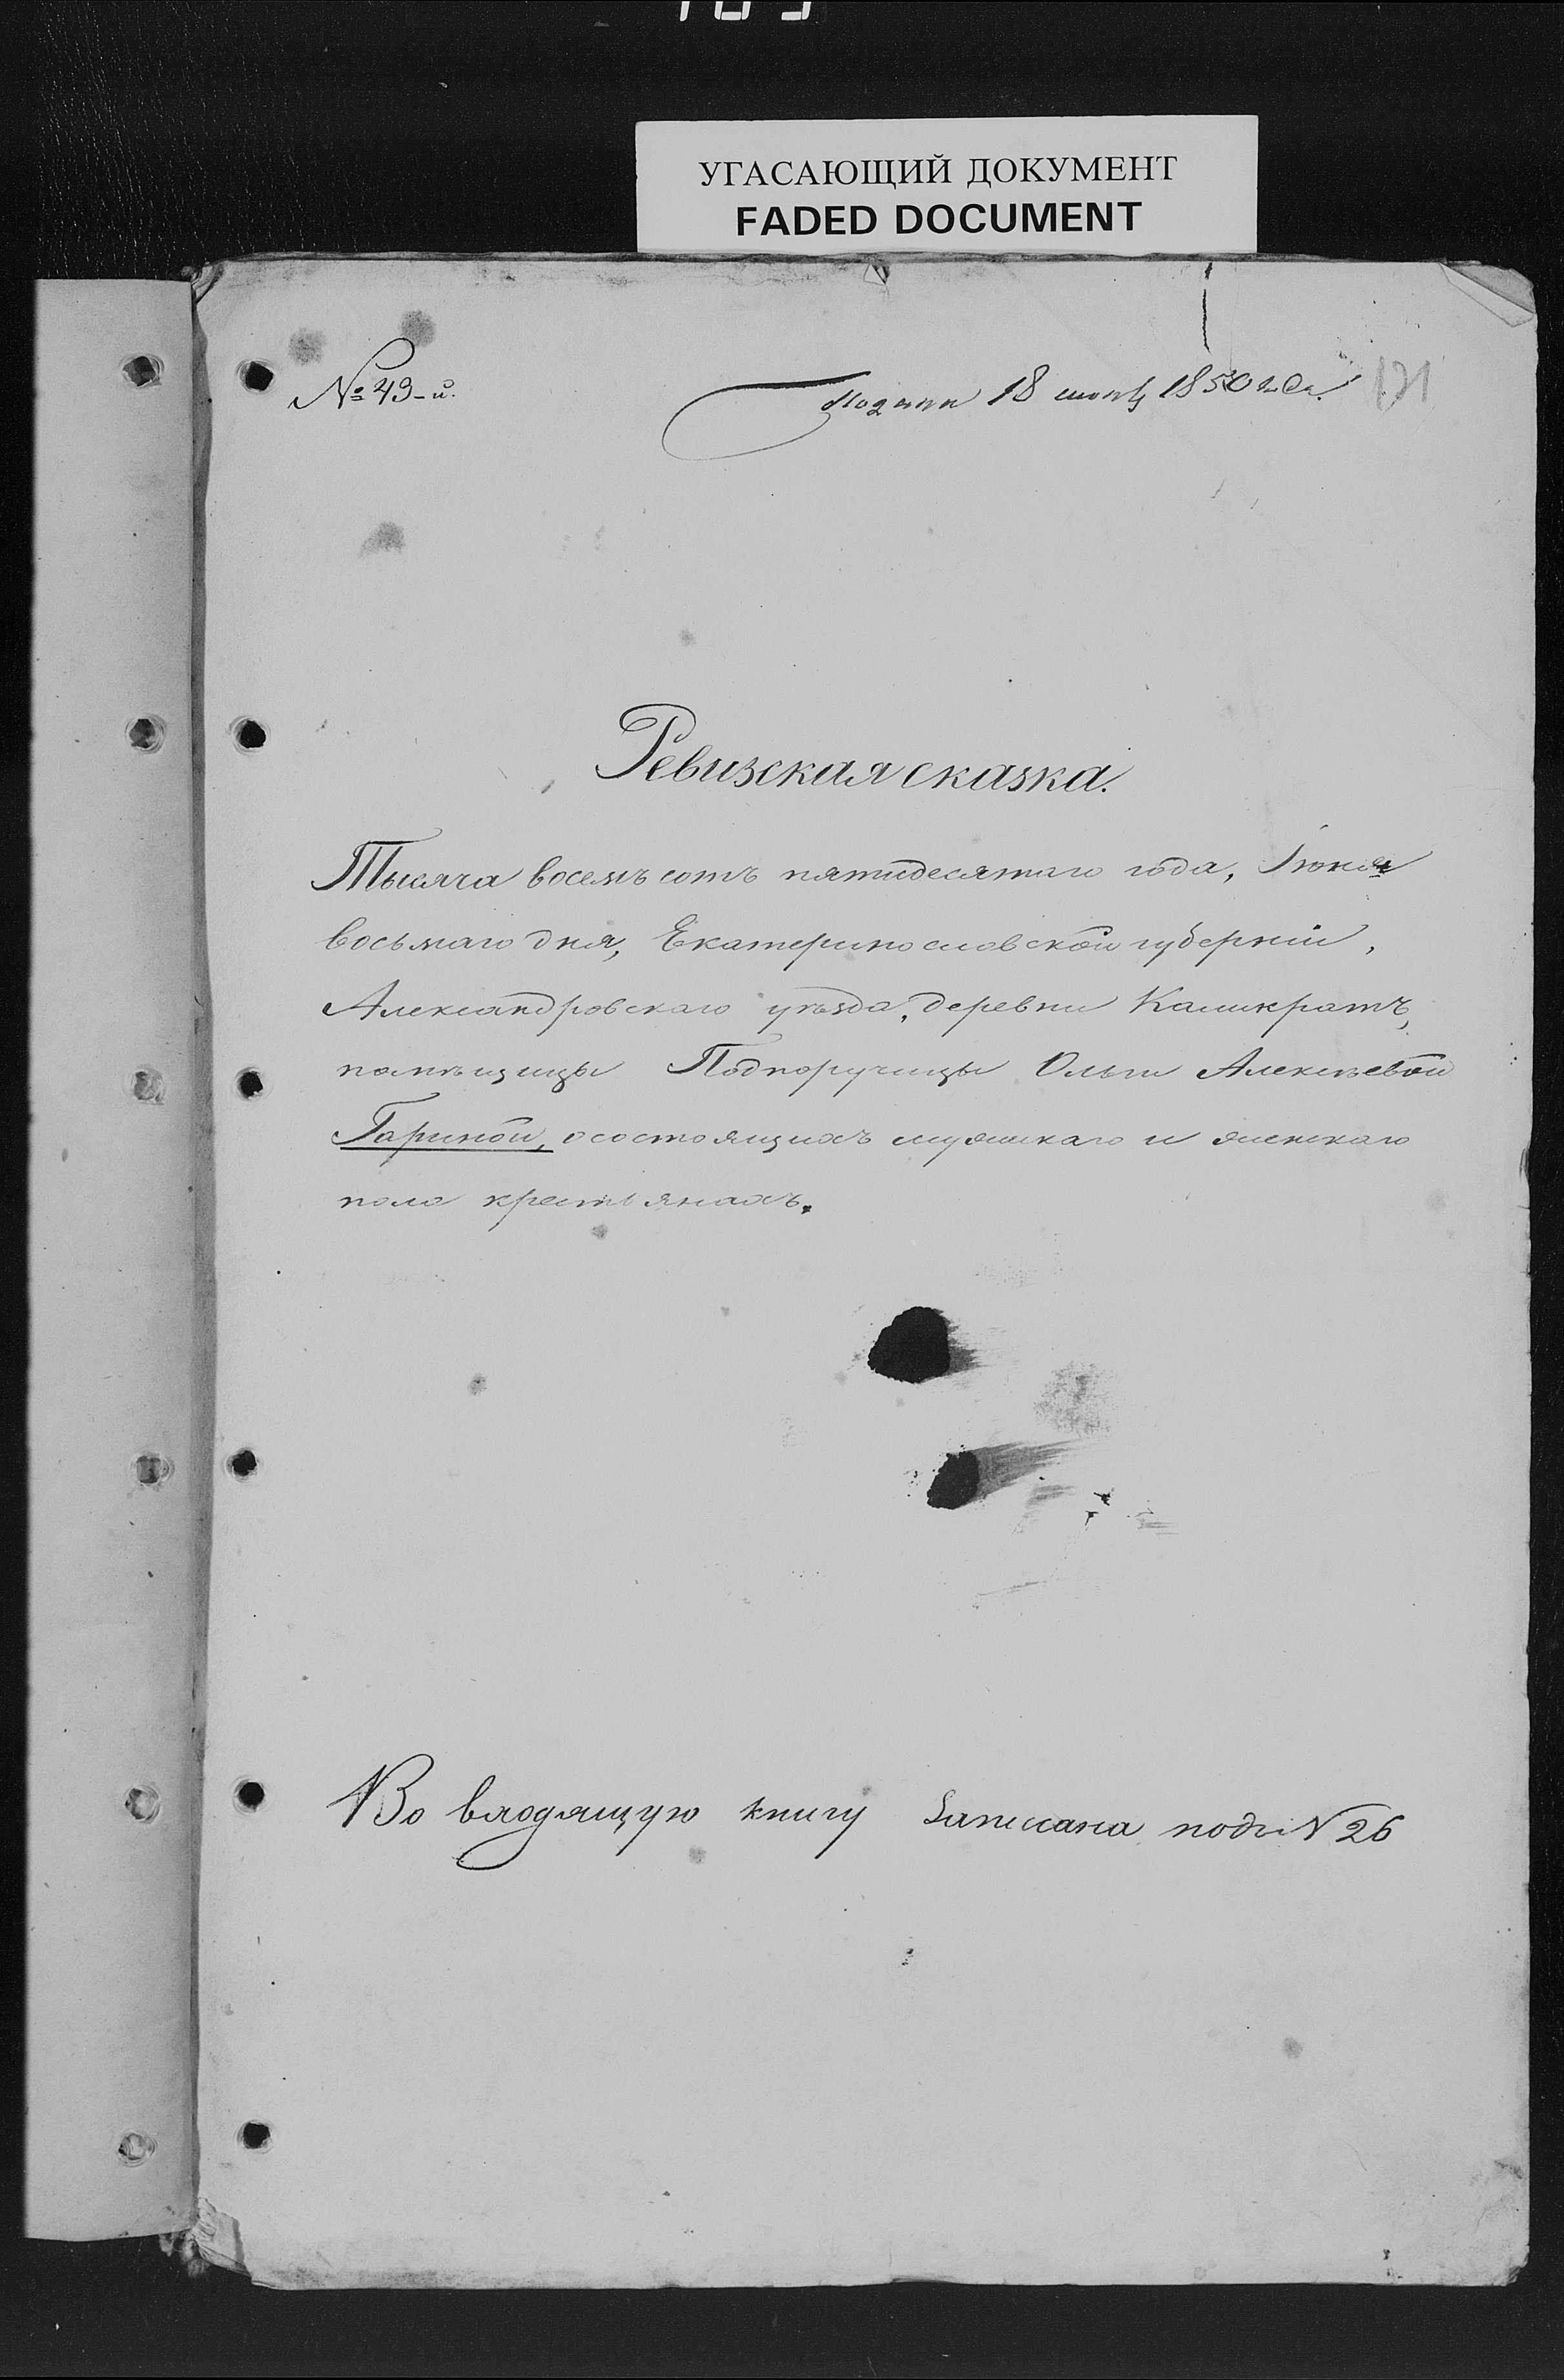 УГАСАЮЩИЙ ДОКУМЕНТ
FADED DOCUMENT
№ 49-й.
Подана 18 июня 1850 года 171
Ревизская сказка.
Тысяча восемъ сотъ пятидесятаго года, Іюня
восьмаго дня, Екатеринославской губерніи,
Александровскаго уѣзда, деревни Каликратъ,
помѣщицы Подпоручицы Ольги Алексѣевой
Гариной, о состоящихъ мужскаго и женскаго
пола крестьянахъ.
Во входящую книгу записана подъ № 26